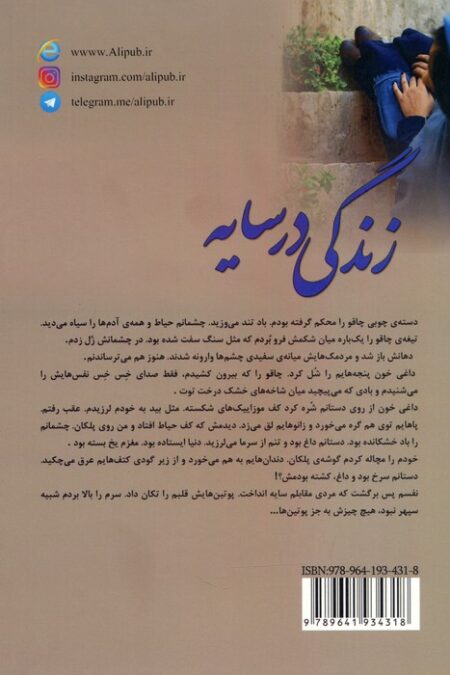 www.Alipub.ir
instagram.com/alipub.ir
telegram.me/alipub.ir
زندگی در سایه
دسته‌ی چوبی چاقو را محکم گرفته بودم. باد تند می‌وزید. چشمانم حیاط و همه‌ی آدم‌ها را سیاه می‌دید.
تیغه‌ی چاقو را یک‌باره میان شکمش فرو بُردم که مثل سنگ سفت شده بود. در چشمانش زُل زدم.
دهانش باز شد و مردمک‌هایش میانه‌ی سفیدی چشم‌ها وارونه شدند. هنوز هم می‌ترساندنم.
داغی خون پنجه‌هایم را شُل کرد. چاقو را که بیرون کشیدم، فقط صدای خِس خِس نفس‌هایش را
می‌شنیدم و بادی که می‌پیچید میان شاخه‌های خشک درخت توت .
داغی خون از روی دستانم شُره کرد کف موزاییک‌های شکسته. مثل بید به خودم لرزیدم. عقب رفتم.
پاهایم توی هم گره می‌خورد و زانوهایم لق می‌زد. دیدمش که کف حیاط افتاد و من روی پلکان. چشمانم
را باد خشکانده بود. دستانم داغ بود و تنم از سرما می‌لرزید. دنیا ایستاده بود. مغزم یخ بسته بود .
خودم را مچاله کردم گوشه‌ی پلکان. دندان‌هایم به هم می‌خورد و از زیر گودی کتف‌هایم عرق می‌چکید.
دستانم سرخ بود و داغ، کشته بودمش؟!
نفسم پس برگشت که مردی مقابلم سایه انداخت. پوتین‌هایش قلبم را تکان داد. سرم را بالا بردم شبیه
سپهر نبود، هیچ چیزش به جز پوتین‌ها...
ISBN:978-964-193-431-8
9 789641 934318